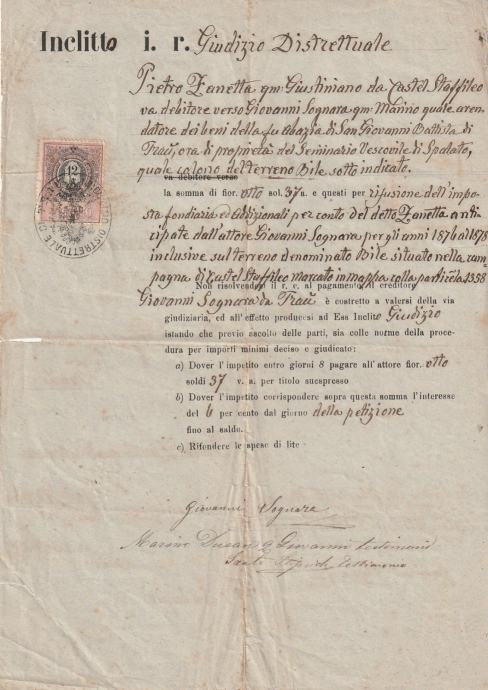 Inclitto i. r. Giudizio Distrettuale
Pietro Zanetta qm Giustiniano da Castel Staffileo
va debitore verso Giovanni Sognara qm Marino quale aren-
datore dei beni della fu Abazia di San Giovanni Battista di
Traù, ora di proprietà del Seminario Vescovile di Spalato,
quale colono del terreno Bile sotto indicato.
va debitore verso
la somma di fior. otto sol. 37 a. e questi per rifusione dell'impo-
sta fondiaria ed addizionali per conto del detto Zanetta anti-
cipate dall'attore Giovanni Sognara per gli anni 1876 al 1878
inclusive sul terreno denominato Bile situato nella cam-
pagna di Castel Staffileo marcato in mappa colla particella 1358
Non risolvendosi il r. c. al pagamento, il creditore
Giovanni Sognara da Traù è costretto a valersi della via
giudiziaria, ed all'effetto producesi ad Ess Inclito Giudizio
istando che previo ascolto delle parti, sia colle norme della proce-
dura per importi minimi deciso e giudicato:
a) Dover l'impetito entro giorni 8 pagare all'attore fior. otto
soldi 37 v. a. per titolo suespresso
b) Dover l'impetito corrispondere sopra questa somma l'interesse
del 6 per cento dal giorno della petizione
fino al saldo.
c) Rifondere le spese di lite
Giovanni Sognara
Marino Giovanni testimonio
testimonio
12
DISTRETTUALE DI